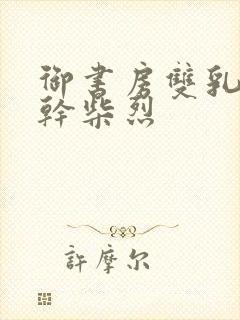 御書房雙乳
幹柴烈
許摩尔